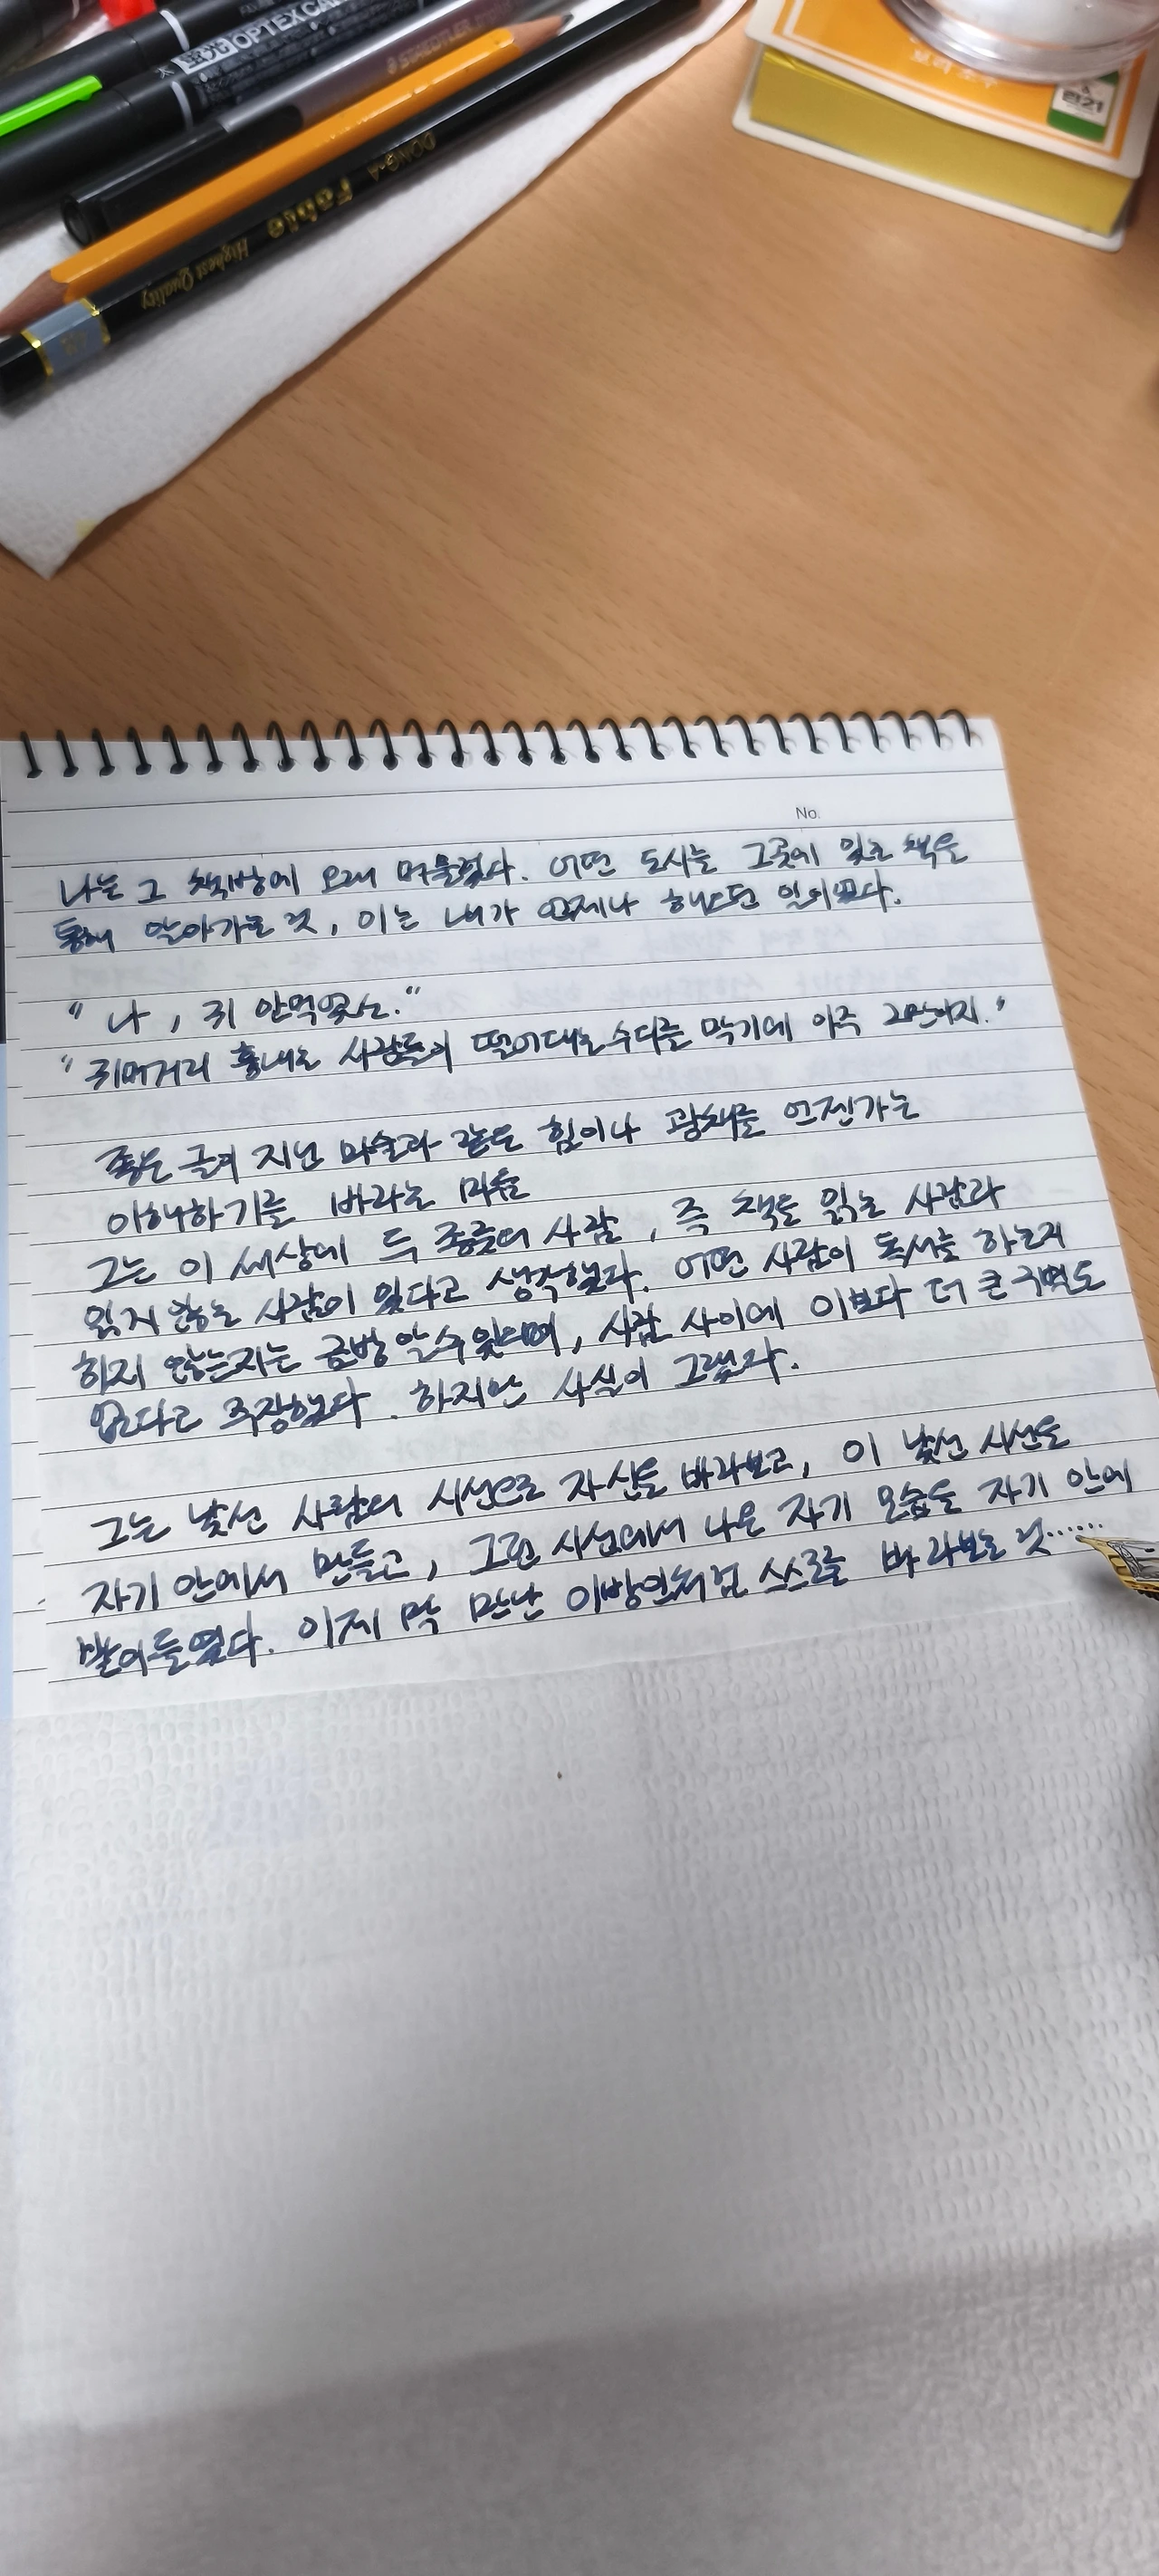 OPTEX CA
STAEDTLER
DONG-A Fable Highest Quality
No.
나는 그 책방에 오래 머물렀다. 어떤 도시는 그곳에 있는 책을
통해 알아가는 것, 이는 내가 언제나 해오던 일이었다.
" 나, 귀 안먹었소."
" 귀머거리 흉내는 사람들이 떨어대는 수다를 막기에 아주 그만이지."
좋은 글이 지닌 마술과 같은 힘이나 광채를 언젠가는
이해하기를 바라는 마음
그는 이 세상에 두 종류의 사람, 즉 책을 읽는 사람과
읽지 않는 사람이 있다고 생각했다. 어떤 사람이 독서를 하는지
하지 않는지는 금방 알수 있으며, 사람 사이에 이보다 더 큰 구별도
없다고 주장했다. 하지만 사실이 그랬다.
그는 낯선 사람의 시선으로 자신을 바라보고, 이 낯선 시선을
자기 안에서 만들고, 그런 시선에서 나온 자기 모습을 자기 안에
받아들였다. 이제 막 만난 이방인처럼 스스로를 바라보는 것......